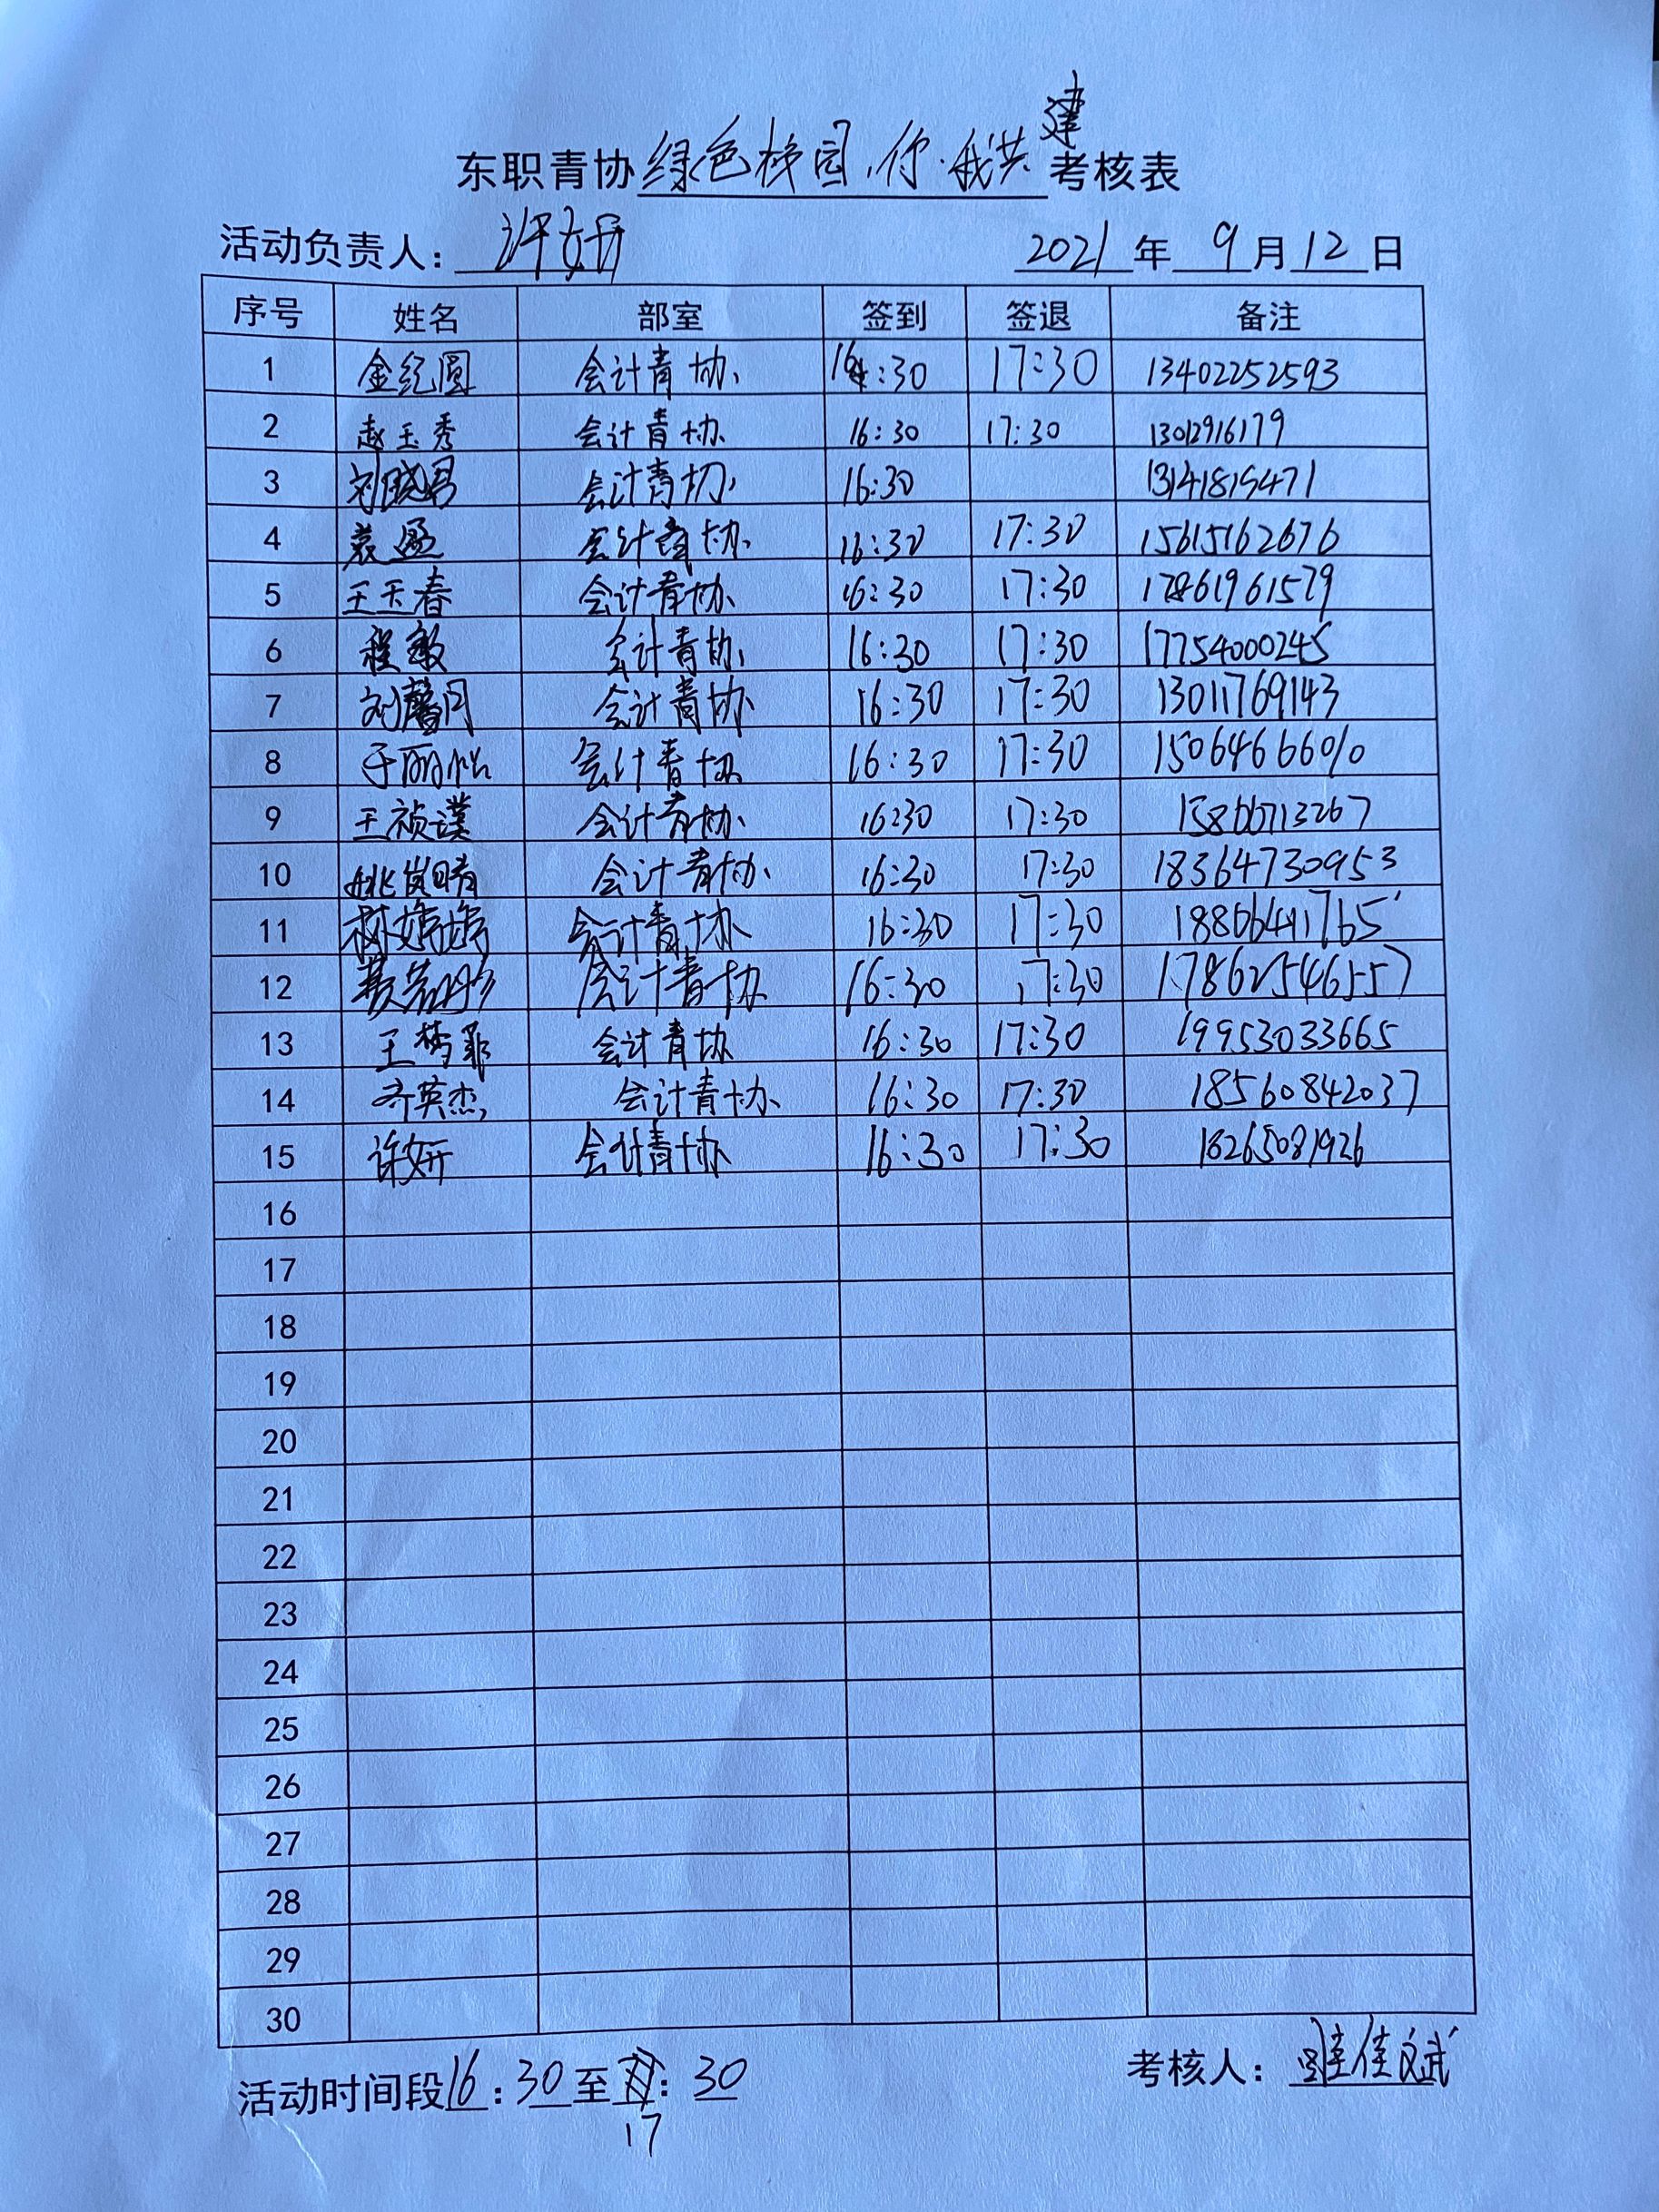 东职青协绿色校园,你我共建考核表
活动负责人: 许妍 2021年9月12日
序号 姓名 部室 签到 签退 备注
1 金纪圆 会计青协 16:30 17:30 13402252593
2 赵玉秀 会计青协 16:30 17:30 13012916179
3 刘晓君 会计青协 16:30 13141815471
4 袁盈 会计青协 16:30 17:30 15615162676
5 王玉春 会计青协 16:30 17:30 17861961579
6 程敏 会计青协 16:30 17:30 17754000245
7 刘馨月 会计青协 16:30 17:30 13011769143
8 于丽怡 会计青协 16:30 17:30
9 王祯谟 会计青协 16:30 17:30 15866713267
10 姚岚晴 会计青协 16:30 17:30 18364730953
11 会计青协 16:30 17:30 18866411765
12 会计青协 16:30 17:30 17862546557
13 王梦菲 会计青协 16:30 17:30 19953033665
14 齐英杰 会计青协 16:30 17:30 18560842037
15 许妍 会计青协 16:30 17:30 18265081926
16
17
18
19
20
21
22
23
24
25
26
27
28
29
30
活动时间段16:30至17:30 考核人: 佳斌